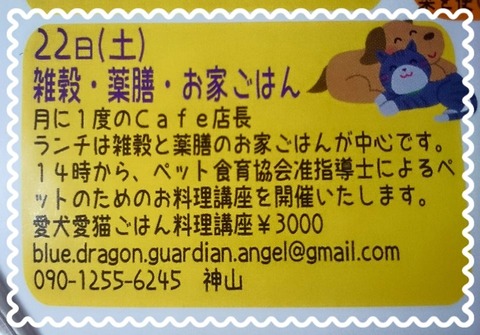 22日(土)
雑穀・薬膳・お家ごはん
月に1度のCafe店長
ランチは雑穀と薬膳のお家ごはんが中心です。
14時から、ペット食育協会准指導士によるペ
ットのためのお料理講座を開催いたします。
愛犬愛猫ごはん料理講座¥3000
blue.dragon.guardian.angel@gmail.com
090-1255-6245 神山